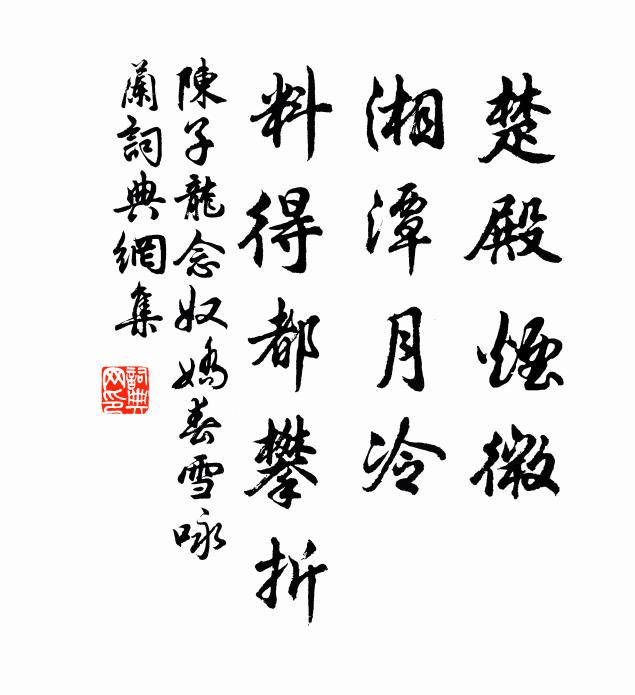 楚殿煙微
湘潭月冷
料得都攀折
陳子龍念奴嬌春雪咏
蘭詞典網集
詞典
网印